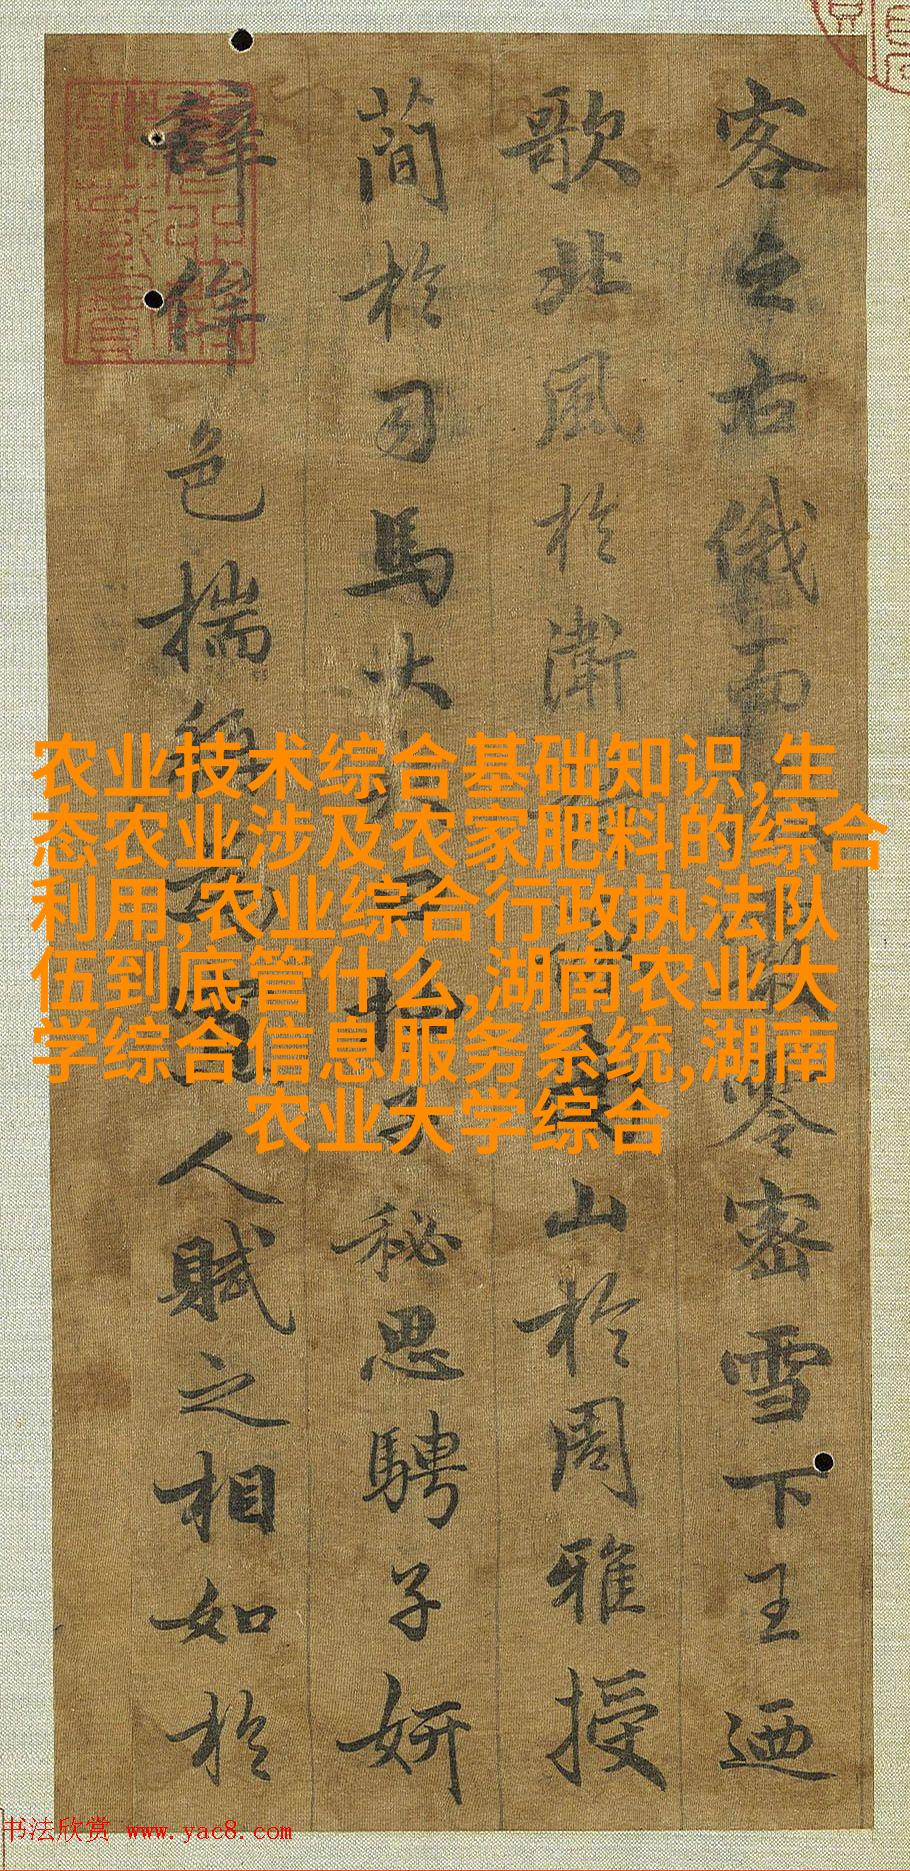 客之右俄而零密雪下王迺
歌北風於衛山於周雅授
簡於司馬大秘思騁子妍
辭侔色揣稱人賦之相如於
农业技术综合基础知识,生
态农业涉及农家肥料的综合
利用,农业综合行政执法队
伍到底管什么,湖南农业大
学综合信息服务系统,湖南
农业大学综合
书法欣赏 www.yac8.com